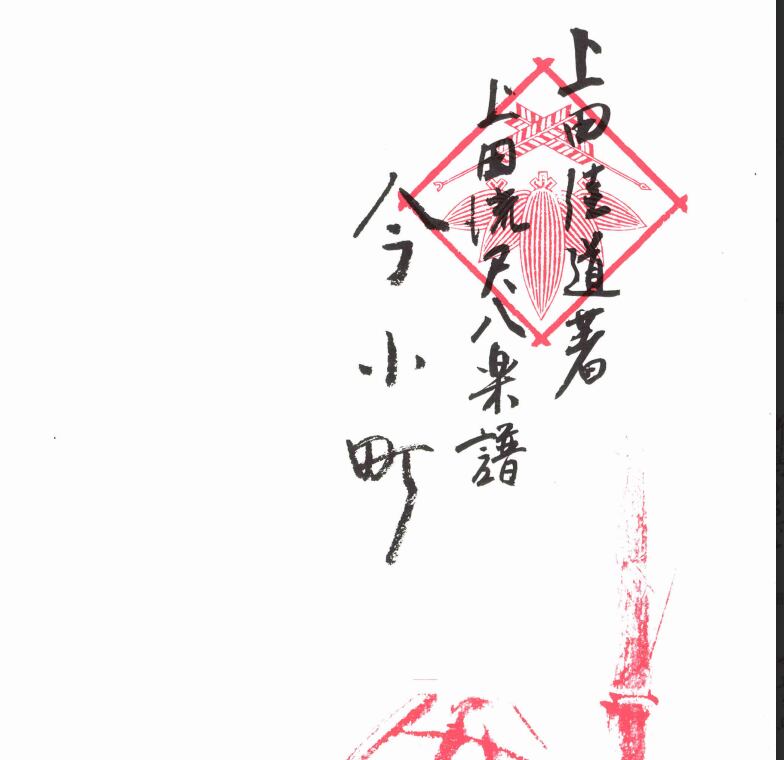 上田佳道著
上田流尺八楽譜
今小町